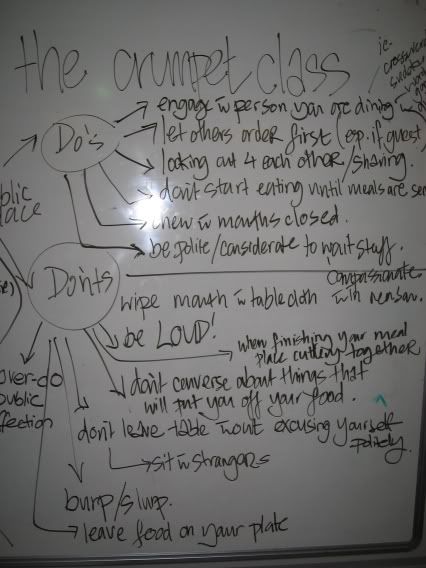 the crumpet class
Do's
engage w person you are dining w
let others order first (esp. if guest)
looking out 4 each other/sharing.
don't start eating until meals are ser
chew w mouths closed.
be polite/considerate to wait staff.
compassionate
w/in reason.
Don'ts
wipe mouth w tablecloth
be LOUD!
when finishing your meal
place cutlery together
don't converse about things that
will put you off your food.
don't leave table w'out excusing yourself
politely.
sit w strangers
burp/slurp.
leave food on your plate
over-do
public
ffection
blic
lace
ie-